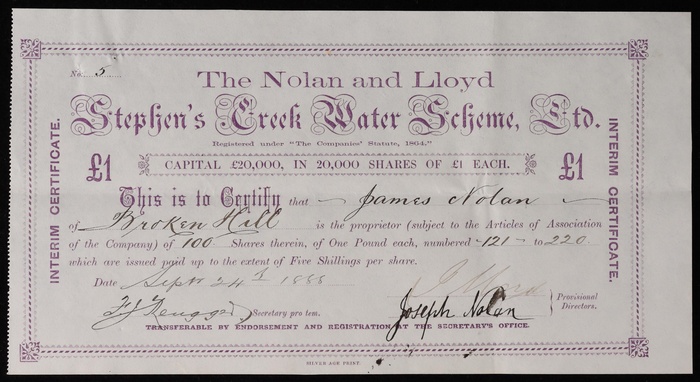 No. 5
The Nolan and Lloyd
Stephen's Creek Water Scheme, Ltd.
Registered under "The Companies' Statute, 1864,"
£1 CAPITAL £20,000, IN 20,000 SHARES OF £1 EACH. £1
INTERIM CERTIFICATE.
INTERIM CERTIFICATE.
This is to Certify that James Nolan
of Broken Hill is the proprietor (subject to the Articles of Association
of the Company) of 100 Shares therein, of One Pound each, numbered 121 to 220
which are issued paid up to the extent of Five Shillings per share.
Date Sept 24th 1888
Secretary pro tem. Joseph Nolan Provisional
Directors.
TRANSFERABLE BY ENDORSEMENT AND REGISTRATION AT THE SECRETARY'S OFFICE.
SILVER AGE PRINT